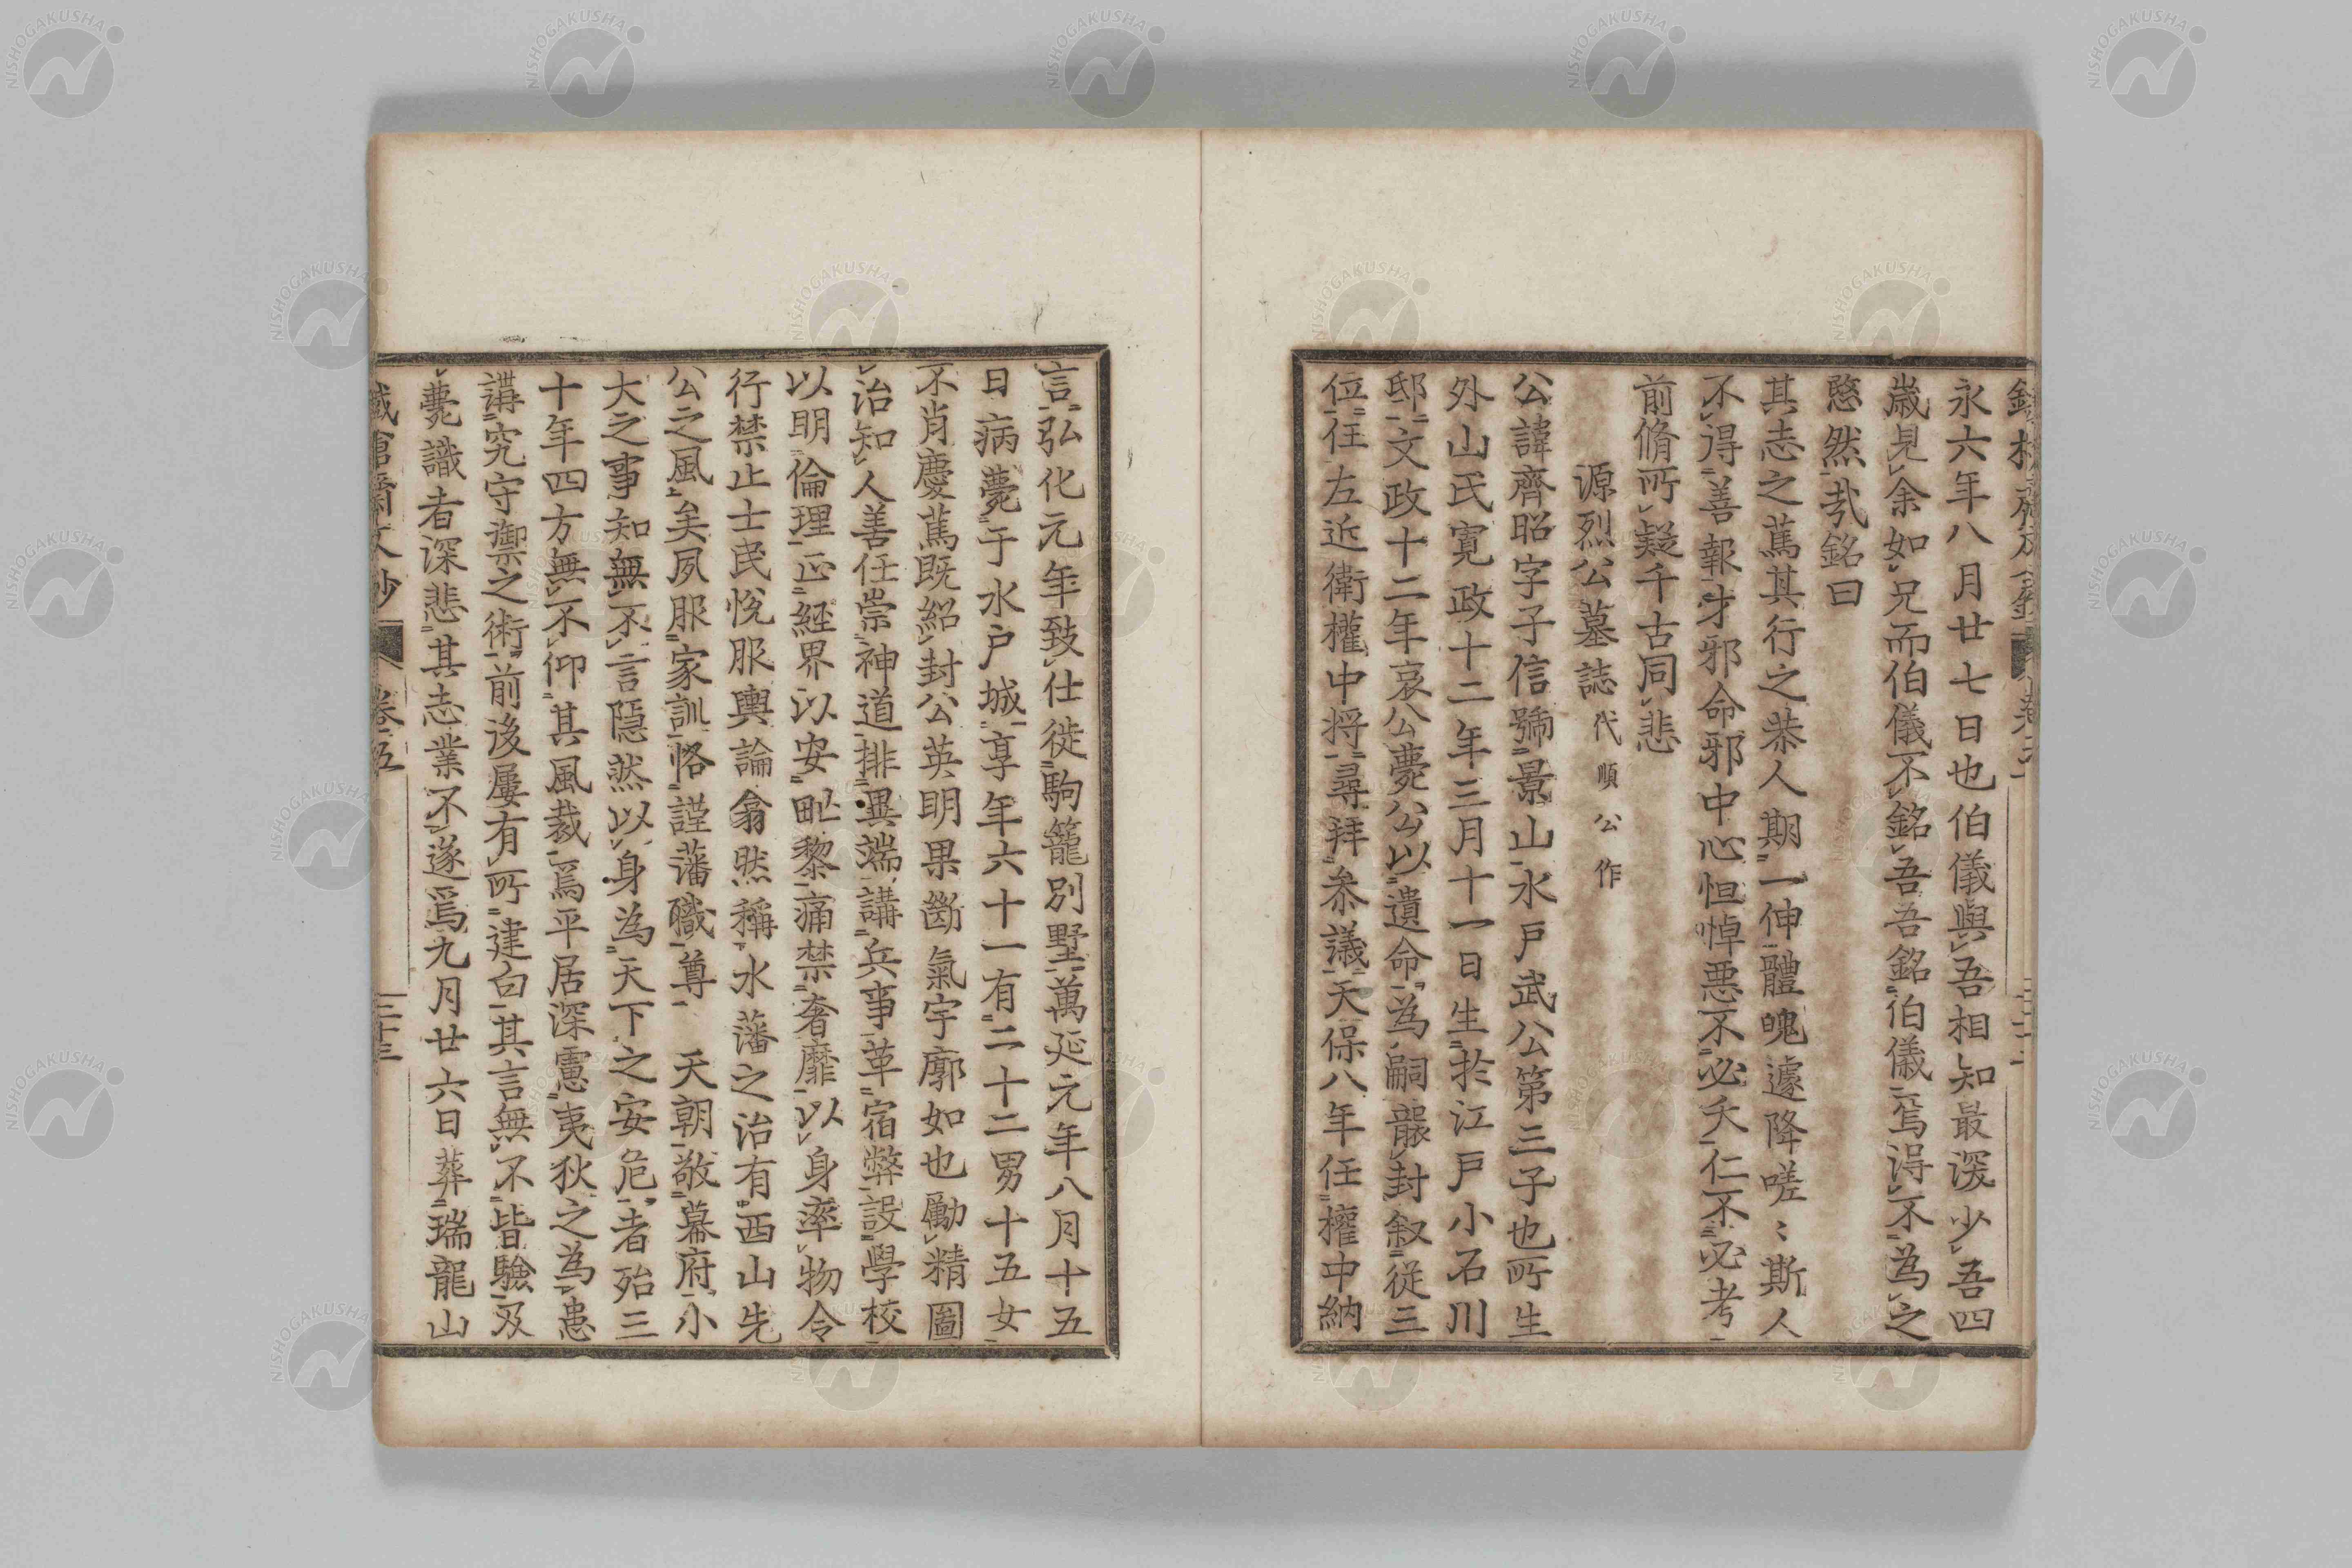 永六年八月廿七日也伯儀與吾相知最深少吾四
歳見余如兄而伯儀不銘吾吾銘伯儀焉得不為之
愍然㢤銘曰
其志之篤其行之恭人期一伸體魄遽降嗟〻斯人
不得善報才邪命邪中心怛悼悪不必夭仁不必考
前脩所疑千古同悲
源烈公墓誌代順公作
公諱齊昭字子信號景山水戶武公第三子也所生
外山氏寛政十二年三月十一日生於江戶小石川
邸文政十二年哀公薨公以遺命為嗣襲封叙従三
位任左近衛權中将尋拜叅議天保八年任權中納
言弘化元年致仕徙駒籠別墅萬延元年八月十五
日病薨于水戶城享年六十一有二十二男十五女
不肖慶篤既紹封公英明果斷氣宇廓如也勵精圖
治知人善任崇神道排異端講兵事革宿弊設學校
以明倫理正経界以安甿黎痛禁奢靡以身率物令
行禁止士民悅服輿論翕然稱水藩之治有西山先
公之風矣夙服家訓恪謹藩職尊 天朝敬幕府小
大之事知無不言隠然以身為天下之安危者殆三
十年四方無不仰其風裁焉平居深慮夷狄之為患
講究守禦之術前後屢有所建白其言無不皆驗及
薨識者深悲其志業不遂焉九月廿六日葬瑞龍山
齋文鈔 卷五 三十三
NISHOGAKUSHA